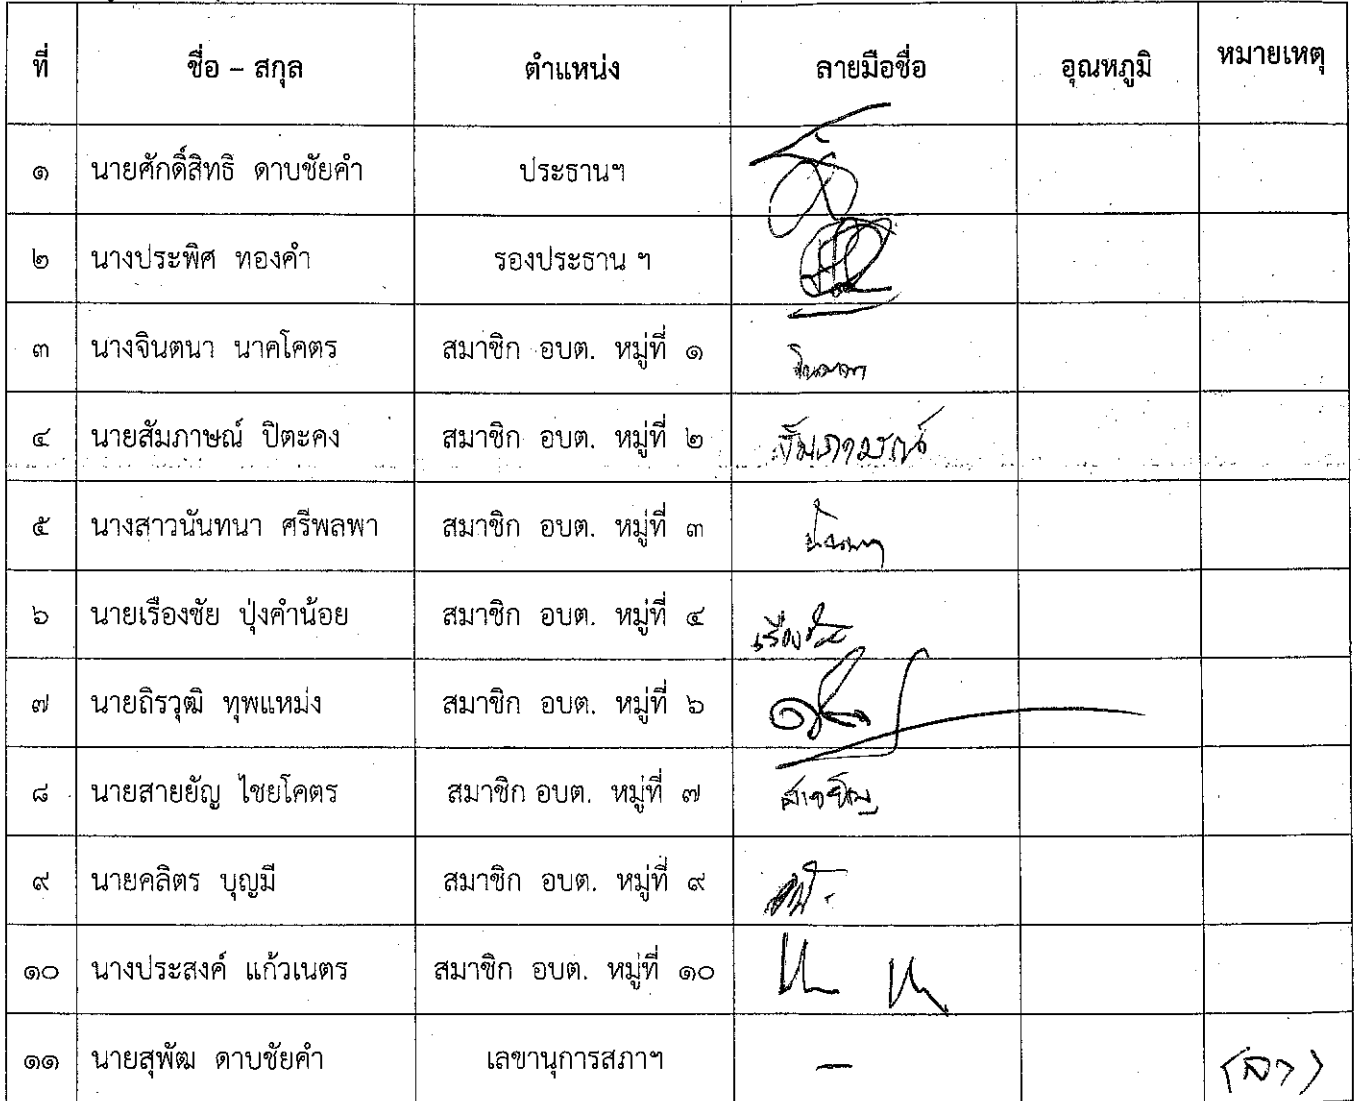 ที่ ชื่อ – สกุล ตำแหน่ง ลายมือชื่อ อุณหภูมิ หมายเหตุ
๑ นายศักดิ์สิทธิ ดาบชัยคำ ประธานฯ
๒ นางประพิศ ทองคำ รองประธาน ฯ
๓ นางจินตนา นาคโคตร สมาชิก อบต. หมู่ที่ ๑ จินตนา
๔ นายสัมภาษณ์ ปิตะคง สมาชิก อบต. หมู่ที่ ๒ สัมภาษณ์
๕ นางสาวนันทนา ศรีพลพา สมาชิก อบต. หมู่ที่ ๓
๖ นายเรืองชัย ปุ่งคำน้อย สมาชิก อบต. หมู่ที่ ๔ เรืองชัย
๗ นายถิรวุฒิ ทุพแหม่ง สมาชิก อบต. หมู่ที่ ๖
๘ นายสายยัญ ไชยโคตร สมาชิก อบต. หมู่ที่ ๗ สายยัญ
๙ นายคลิตร บุญมี สมาชิก อบต. หมู่ที่ ๙
๑๐ นางประสงค์ แก้วเนตร สมาชิก อบต. หมู่ที่ ๑๐
๑๑ นายสุพัฒ ดาบชัยคำ เลขานุการสภาฯ – (ลา)